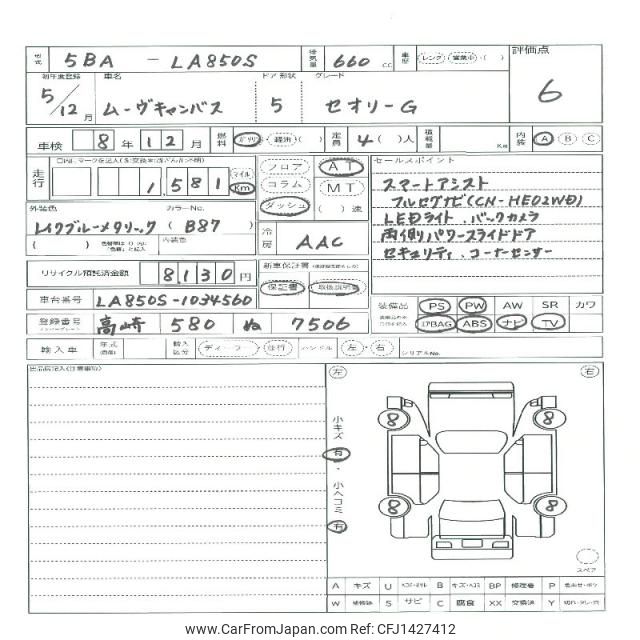 型式 5BA - LA850S 排気量 660 cc 車歴 レンタ ・ 営業中 ・ ( ) 評価点
初年度登録 車名 ドア 形状 グレード
5/12 月 ムーヴキャンバス 5 セオリーG 6
車検 8 年 12 月 燃料 ガソリ ・ 軽油 ( ) 定員 4 ( )人 積載量 Kg 内装 A B C
走行 1,581 マイル Km フロア コラム ダッシュ AT MT ( )速
セールスポイント
スマートアシスト
フルセグナビ(CN-HE02WD)
LEDライト、バックカメラ
両側パワースライドドア
セキュリティ、コーナーセンサー
外装色 カラーNo.
レイクブルーメタリック ( B87 )
( ) 内装色
冷房 AAC
リサイクル預託済金額 8130 円
新車保証書 保証書 ・ 取扱説明書
車台番号 LA850S-1034560
装備品 PS PW AW SR カワ
エアBAG ABS ナビ TV
登録番号 高崎 580 ぬ 7506
輸入車 年式 輸入区分 ディーラー ・ 並行 ハンドル 左 ・ 右 シリアルNo.
出品店記入(注意事項)
左 右
小キズ 有 ・ 小ヘコミ 有
8 8
8 8
スペア
A キズ U B キズ・ヘコミ BP 修理書 P
W 補修跡 S サビ C 腐食 XX 交換済 Y
www.CarFromJapan.com Ref: CFJ1427412